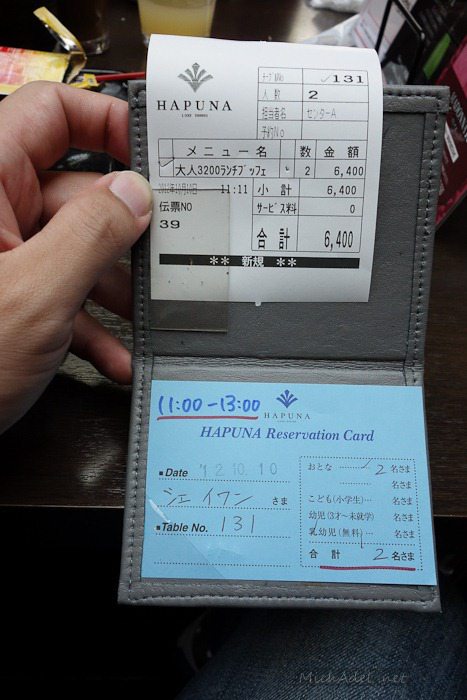 HAPUNA
テーブルNo 131
人数 2
担当者名 センターA
予約No
メニュー名 数 金額
大人3200ランチブッフェ 2 6,400
2012年10月10日 11:11 小計 6,400
伝票NO サービス料 0
39
合計 6,400
** 新規 **
11:00-13:00
HAPUNA
HAPUNA Reservation Card
■Date '12.10.10
シェイワン さま
■Table No. 131
おとな 2名さま
名さま
こども(小学生) 名さま
幼児(3才~未就学) 名さま
乳幼児(無料) 名さま
合計 2名さま
MichAdel.net